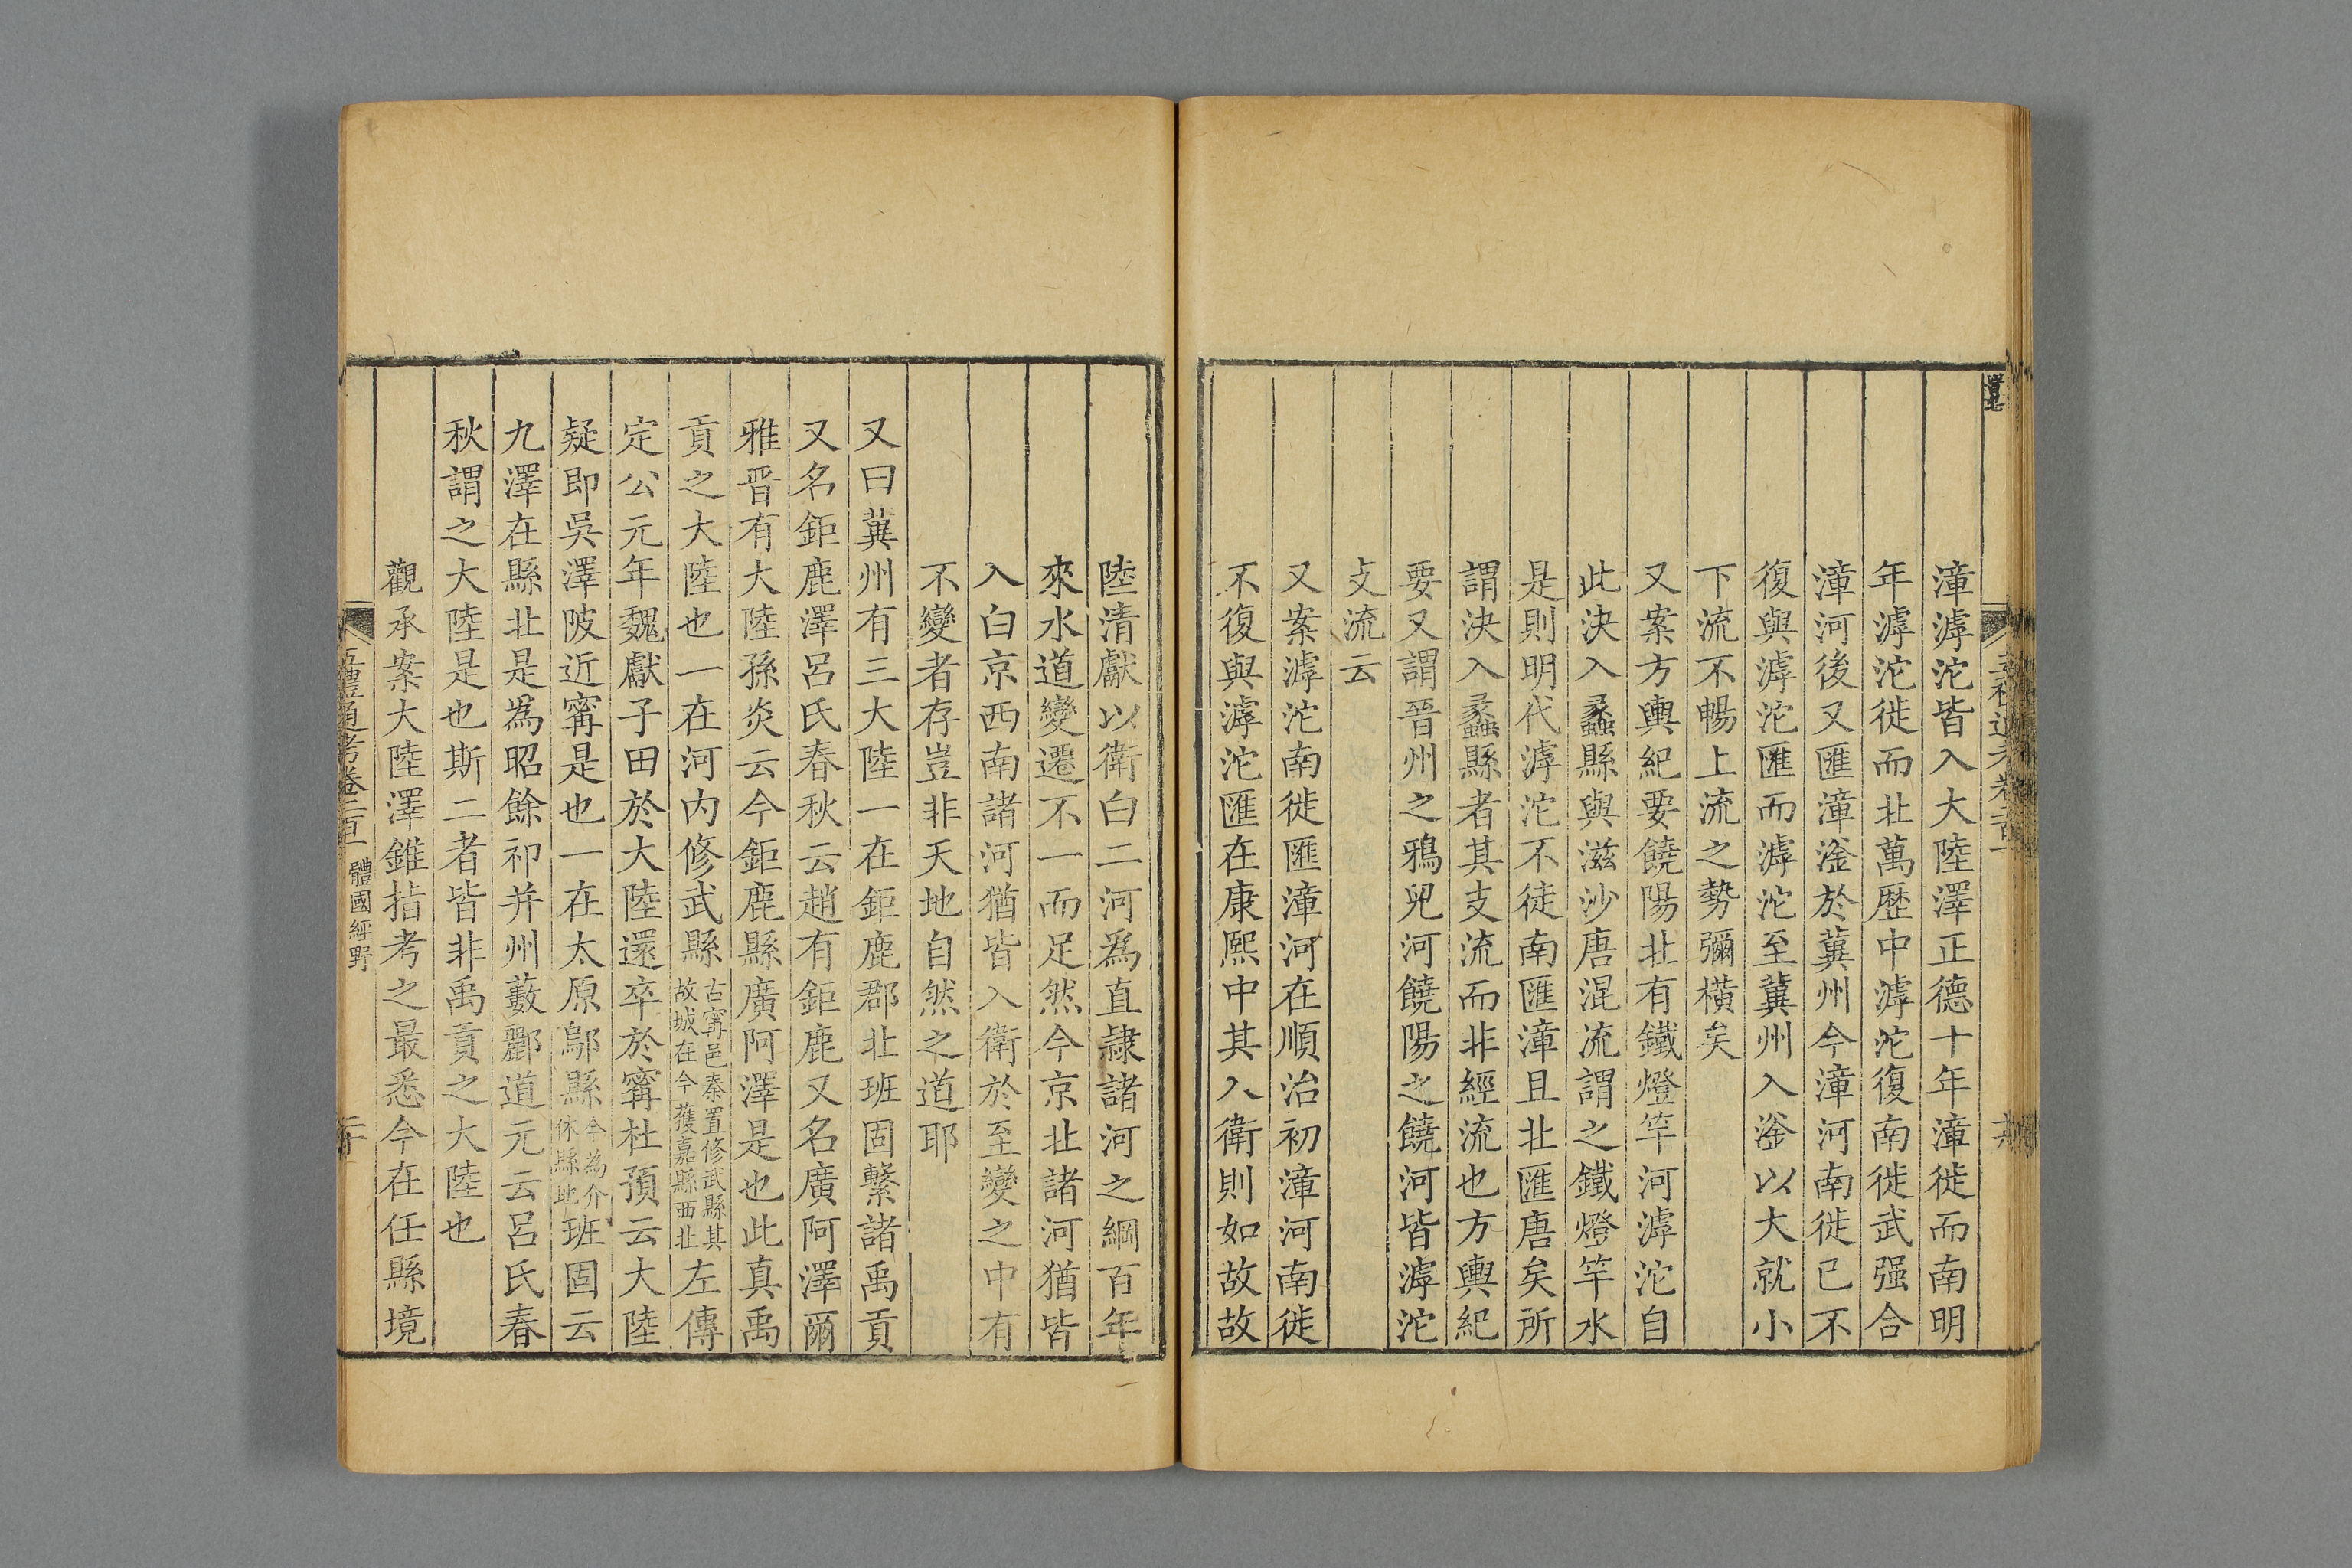 漳滹沱皆入大陸澤正德十年漳徙而南明
年滹沱徙而北萬歷中滹沱復南徙武强合
漳河後又匯漳滏於冀州今漳河南徙已不
復與滹沱匯而滹沱至冀州入滏以大就小
下流不暢上流之勢彌橫矣
又案方輿紀要饒陽北有鐵燈竿河滹沱自
此決入蠡縣與滋沙唐混流謂之鐵燈竿水
是則明代滹沱不徒南匯漳且北匯唐矣所
謂決入蠡縣者其支流而非經流也方輿紀
要又謂晉州之鴉兒河饒陽之饒河皆滹沱
支流云
又案滹沱南徙匯漳河在順治初漳河南徙
不復與滹沱匯在康熙中其入衛則如故故
陸清獻以衛白二河為直隷諸河之綱百年
來水道變遷不一而足然今京北諸河猶皆
入白京西南諸河猶皆入衛於至變之中有
不變者存豈非天地自然之道耶
又曰冀州有三大陸一在鉅鹿郡北班固繫諸禹貢
又名鉅鹿澤呂氏春秋云趙有鉅鹿又名廣阿澤爾
雅晋有大陸孫炎云今鉅鹿縣廣阿澤是也此真禹
貢之大陸也一在河内修武縣古甯邑秦置修武縣其故城在今獲嘉縣西北左傳
定公元年魏獻子田於大陸還卒於甯杜預云大陸
疑即吳澤陂近甯是也一在太原鄔縣今為介休縣地班固云
九澤在縣北是為昭餘祁并州藪酈道元云呂氏春
秋謂之大陸是也斯二者皆非禹貢之大陸也
觀承案大陸澤錐指考之最悉今在任縣境
五禮通考卷二百一 體國經野 二十